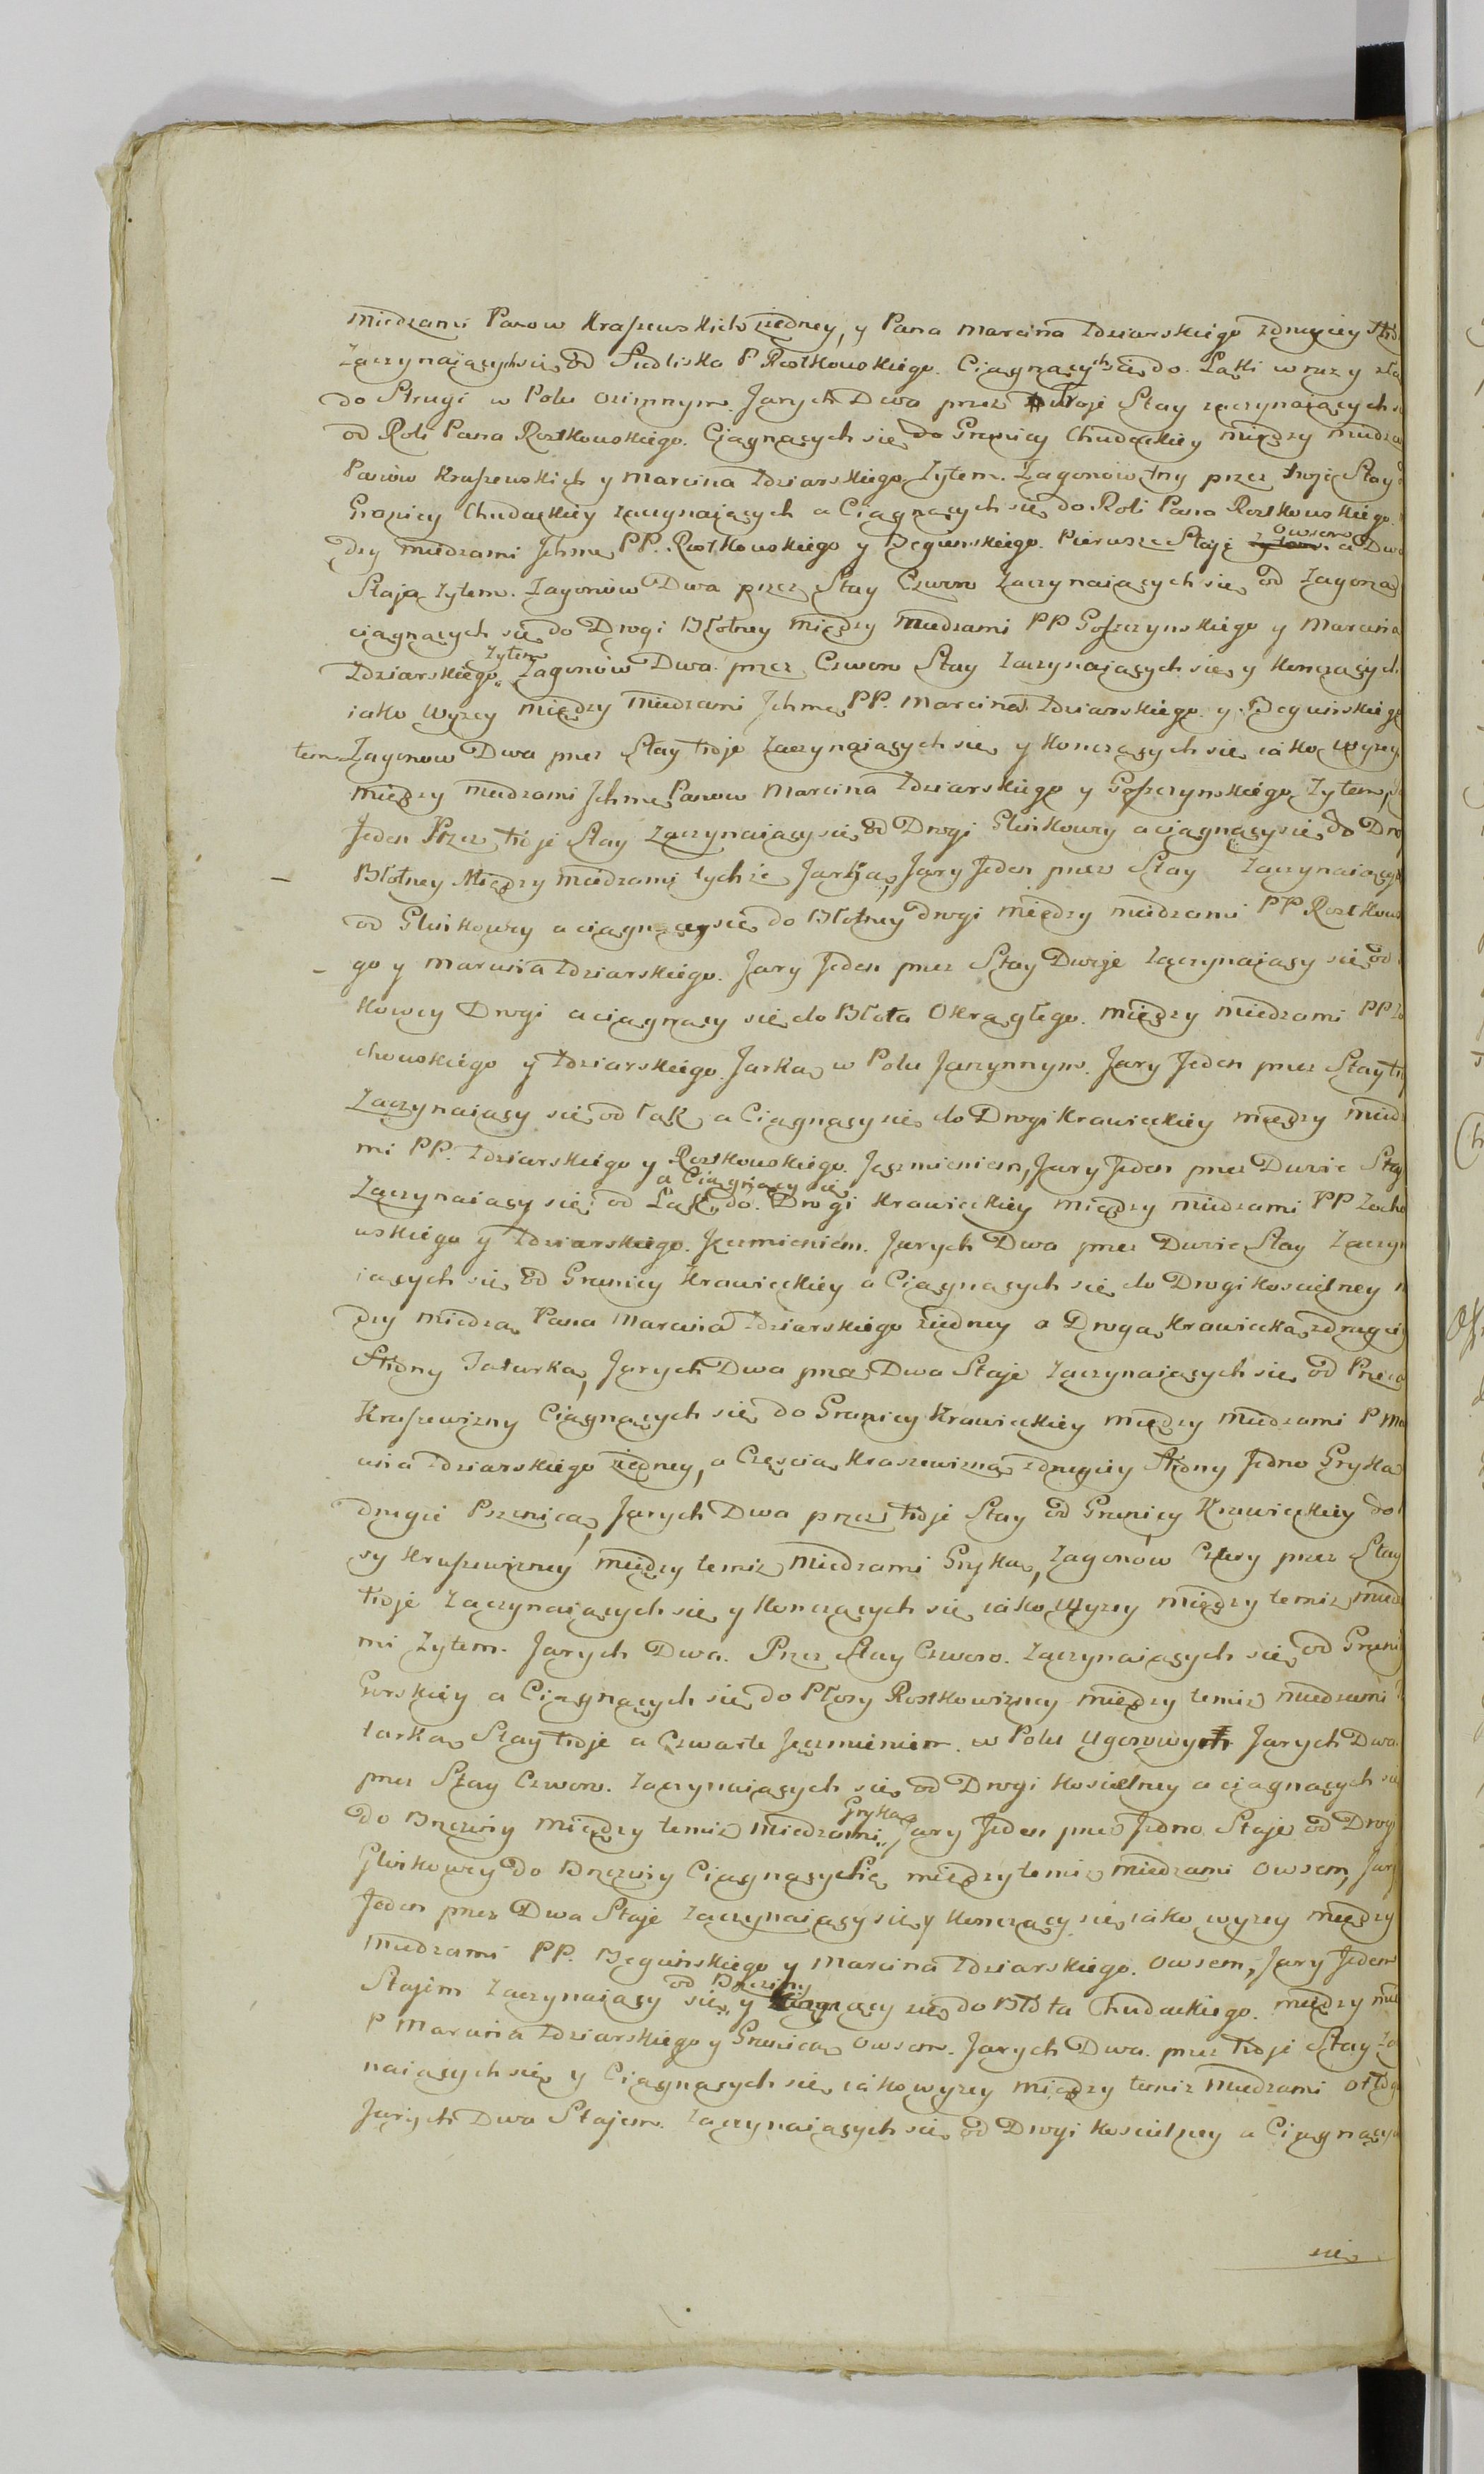 miedzami Panow Kraszewskich ziedney, y Pana Marcina Zdziarskiego zdrugiey
Zaczynaiących się od Siedliska P Rostkowskiego. Ciągnących się do Łąki w razy
do Strugi w Polu ozimnym. Jarych Dwa przez troje Stay zaczynaiących
od Roli Pana Rostkowskiego. Ciągnących się do Granicy Chudeckiey między miedza
Panów Kraszewskich y Marcina Zdziarskiego Zytem. Zagonów trzy przez troje Stay
Granicy Chudeckiey zaczynaiących a Ciągnących się do Roli Pana Rostkowskiego.
dzy miedzami Jchmę PP. Rostkowskiego y Beguńskiego. Pierwsze Staje owsem a Dwa
Staja Zytem. Zagonów Dwa przez Stay Czworo Zaczynaiących się od Zagona
ciągnących się do Drogi Błotney między miedzami PP Goszczyńskiego y Marcina
Zdziarskiego Zytem Zagonów Dwa przez Czworo Stay Zaczynaiących się y Konczących
iako wyzey między miedzami Jchmę PP. Marcina Zdziarskiego y Beguńskiego
tem Zagonow Dwa przez Stay troje Zaczynaiących się y Konczących się iako wyzey
między miedzami Jchmę Panow Marcina Zdziarskiego y Goszczyńskiego Zytem,
Jeden Przez troje Stay Zaczynaiący się od Drogi Glinkowey a ciągnący się do Dro
Błotney Między miedzami tychże Jarką, Jary Jeden przez Stay Zaczynaiący
od Glinkowey a ciągnący się do Błotney drogi między miedzami PP Rostkows
go y Marcina Zdziarskiego. Jary Jeden przez Stay Dwoje Zaczynaiący się od
kowey Drogi a ciągnący się do Błota Okrągłego. między miedzami PP Zo
chowskiego y Zdziarskiego. Jarką w Polu Jarzynnym. Jary Jeden przez Stay
Zaczynaiący się od Łąk a Ciągnący się do Drogi Krawieckiey między mied
mi PP. Zdziarskiego y Rostkowskiego. Jęczmieniem, Jary Jeden przez Dwie Stay
Zaczynaiący się od Łąk a Ciągnący się do Drogi Krawieckiey między miedzami PP Zocho
wskiego y Zdziarskiego. Jęczmieniem. Jarych Dwa przez Dwie Stay Zaczyn
iących się od Granicy Krawieckiey a Ciągnących się do Drogi Koscielney
dzy miedzą Pana Marcina Zdziarskiego ziedney a Drogą Krawiecką zdrugiey
Strony Tatarką, Jarych Dwa przez Dwa Staje Zaczynaiących się od
Kraszewizny Ciągnących się do Granicy Krawieckiey między miedzami P Ma
cina Zdziarskiego ziedney, a Częscią Kraszewizną zdrugiey Strony Jedno Gryką
drugie Pszenicą, Jarych Dwa przez troje Stay od Granicy Krawieckiey do
sy Kraszewizney między temiz miedzami Gryką, Zagonów Cztery przez Stay
troje Zaczynaiących się y Konczących się iako wyzey między temiz mied
mi Zytem. Jarych Dwa. Przez Stay Czworo. Zaczynaiących się od Grani
Gorskiey a Ciągnących się do Płosy Rostkowizney między temiz miedzami
tarką Stay troje a Czwarte Jęczmieniem. w Polu Ugorowym Jarych Dwa
przez Stay Czworo. Zaczynaiących się od Drogi Koscielney a ciągnących się
do Brzeziny między temiz miedzami Gryką Jary Jeden przez Jedno Staje od Drogi
Glinkowey do Brzeziny Ciągnących się między temiz miedzami owsem, Jary
Jeden przez Dwa Staje Zaczynaiący się y Konczący się iako wyzey między
miedzami PP. Beguńskiego y Marcina Zdziarskiego. owsem, Jary Jeden
Stajem Zaczynaiący się od Brzeziny y Ciągnący się do Błota Chudeckiego. między mie
P Marcina Zdziarskiego y Granicą owsem. Jarych Dwa. przez troje Stay Za
naiących się y Ciągnących się iako wyzey między temiz miedzami
Jarych Dwa Stajem. Zaczynaiących się od Drogi Koscielney a Ciągnący
się